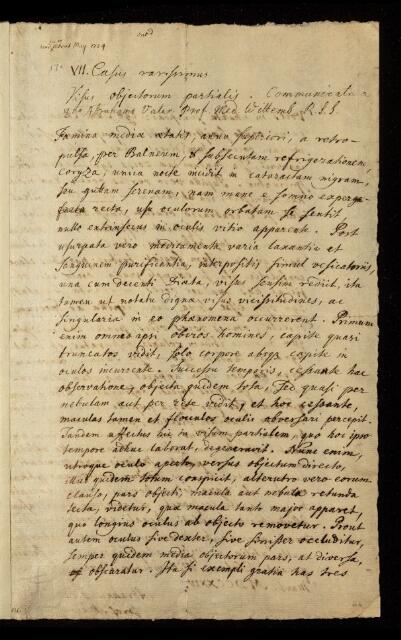 May 1724
VII. Casus rarissimus
Visus objectorum partialis. Communicatus a
Abrahamo Vater Prof. Med. Wittemb. R.S.S.
Fæmina media ætatis, anno superiori, a retro-
pulsa, per Balneum, & subsecutam refrigerationem,
coryza, unica nocte incidit in cataractam nigram,
seu guttam serenam, nam mane e somno experge-
facta recta, usu oculorum orbatam se sentit,
nullo extrinsecus in oculis vitio apparente. Post
usurpata vero medicamenta varia laxantia et
sanguinem purificantia, interpositis simul vesicatoriis,
una cum decenti Diæta, visus sensim rediit, ita
tamen ut notatu digna visus vicissitudines, ac
singularia in eo phænomena occurrerent. Primum
enim omnes ipsi obvios homines, capite quasi
truncatos vidit, solo corpore absq capite in
oculos incurrente. Successu temporis, cessante hac
observatione, objecta quidem tota, sed quasi per
nebulam aut per rete vidit, et hoc cessante,
maculas tamen et flocculos oculis obversari percepit.
Tandem affectus hic in visum partialem, quo hoc ipso
tempore adhuc laborat, degeneravit. Nunc enim,
utroque oculo aperto, versus objectum directo,
illud quidem totum conspicit, alterutro vero eorum
clauso, pars objecti, macula aut nebula rotunda
tecta, videtur, quæ macula tanto major apparet,
quo longius oculus ab objecto removetur. Prout
autem oculus sive dexter, sive sinister occluditur,
semper quidem media objectorum pars, at diversa,
obscuratur. Ita si exempli gratia has tres